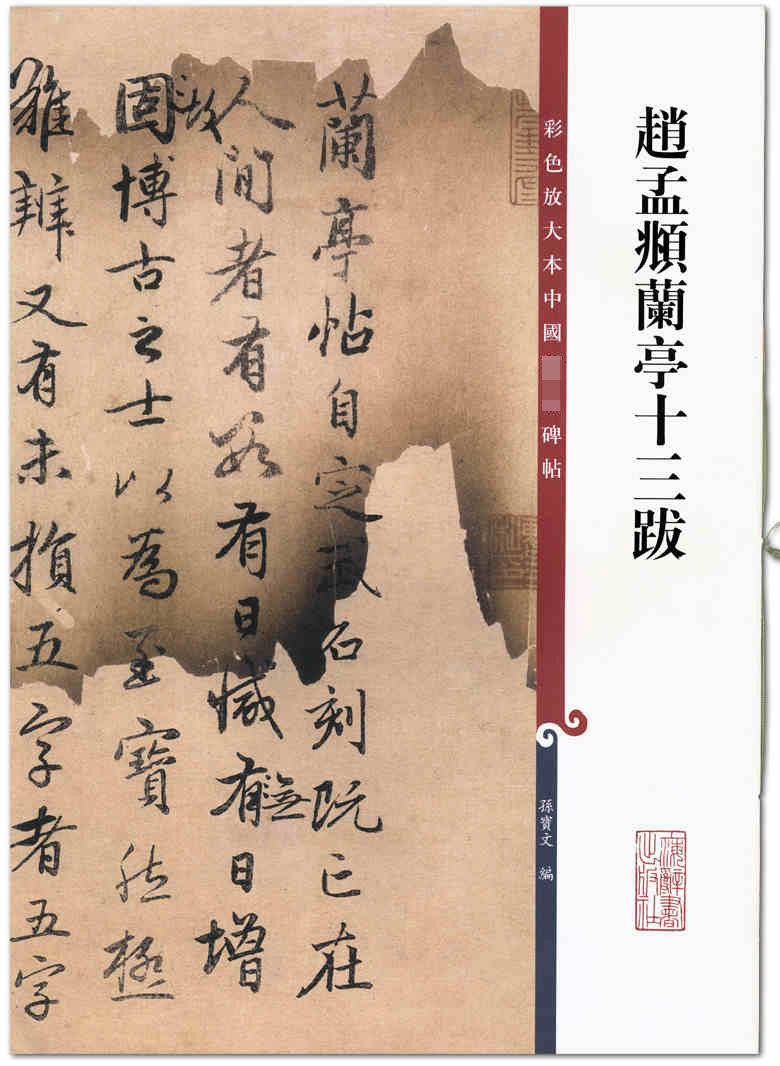 趙孟頫蘭亭十三跋
彩色放大本中國
碑帖
孫寶文 編
海辭書
出版社
蘭亭帖自定武石刻既亡在
人間者有數有日減有無日增
固故博古之士以為至寶然極
難辨又有未損五字者五字